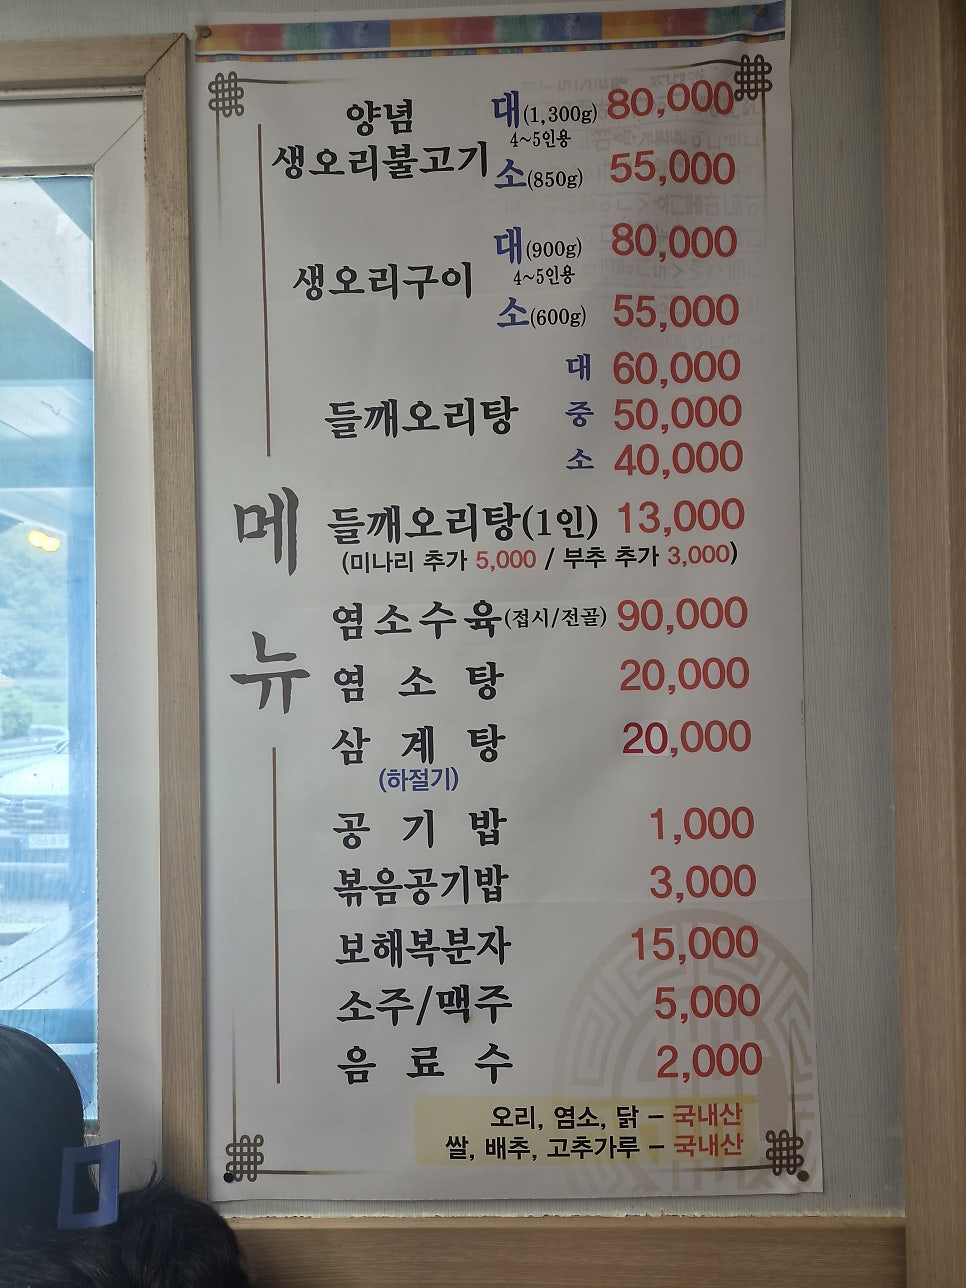 메뉴
양념
생오리불고기
대(1,300g) 80,000
4~5인용
소(850g) 55,000
생오리구이
대(900g) 80,000
4~5인용
소(600g) 55,000
들깨오리탕
대 60,000
중 50,000
소 40,000
들깨오리탕(1인) 13,000
(미나리 추가 5,000 / 부추 추가 3,000)
염소수육(접시/전골) 90,000
염소탕 20,000
삼계탕 20,000
(하절기)
공기밥 1,000
볶음공기밥 3,000
보해복분자 15,000
소주/맥주 5,000
음료수 2,000
오리, 염소, 닭 – 국내산
쌀, 배추, 고추가루 – 국내산